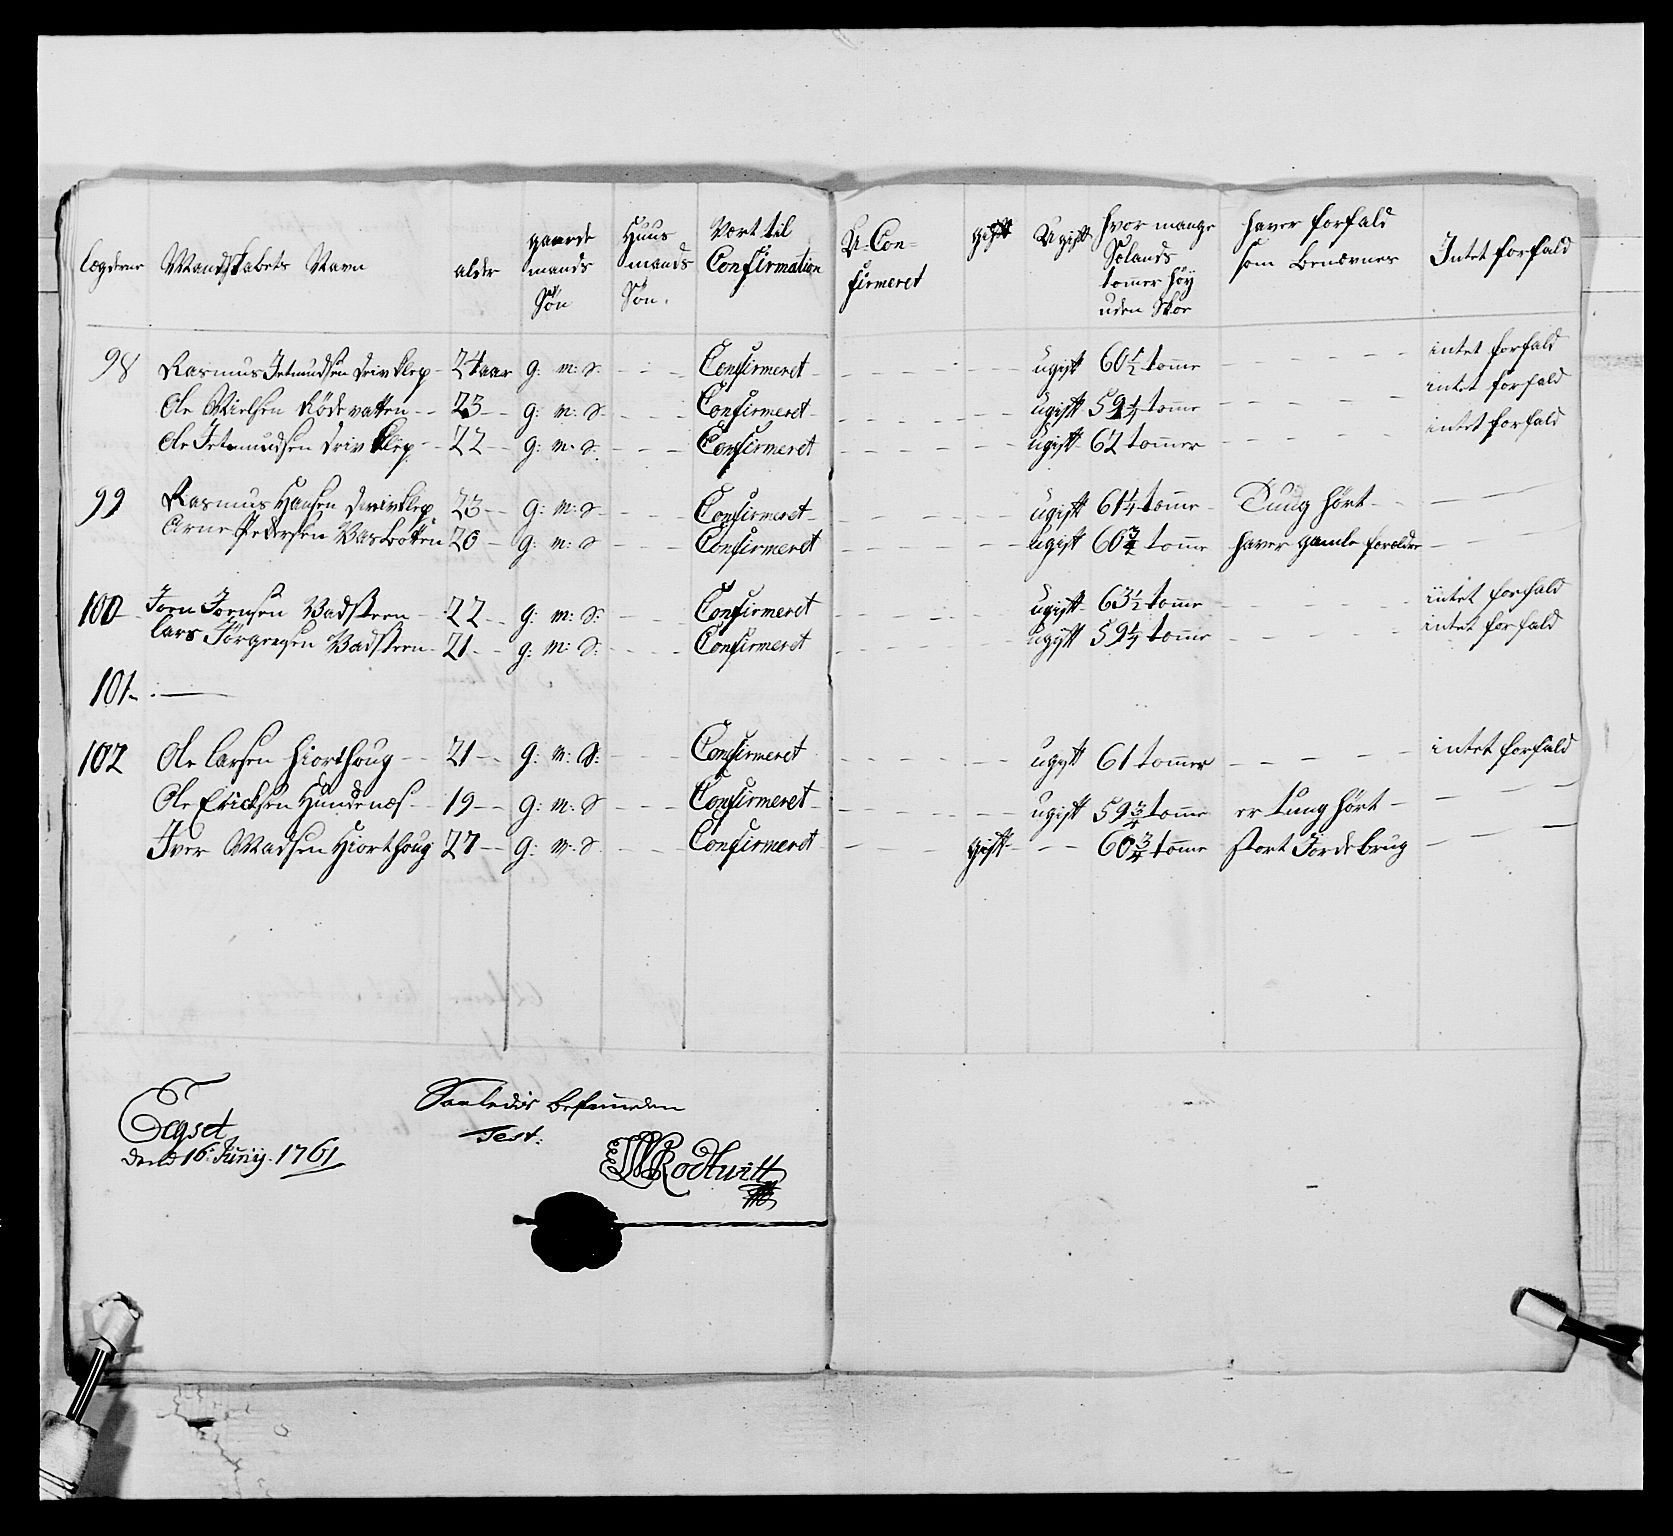 lægderne Mandskabets Navn alder gaardmands Søn Huusmands Søn. Vært til Confirmation U-Confirmeret gift Ugift hvor mange Sælands tommer høy uden Skoe haver forfald som benævnes Intet forfald
98 Rasmus Jetmundsen Drivklep - 24 aar g: m: S. Confirmeret ugift 60 1/2 tomme intet forfald
Ole Nielsen Rödevatten - 23 - g: m: S. Confirmeret ugift 59 1/4 tomme intet forfald
Ole Jetmundsen Drivklep - 22 - g: m: S. Confirmeret ugift 62 tommer intet forfald
99 Rasmus Hansen Drivklep 23 - g: m: S. Confirmeret ugift 61 1/4 tomme Tung hört
Arne Pedersen Vasbotten 20 - g: m: S Confirmeret ugift 60 3/4 tomme haver gamle forældre
100 Jorn Jornsen Vadsteen 22 - g: m: S: Confirmeret ugift 63 1/2 tomme intet forfald
Lars Jörgensen Vadsteen - 21 - g: m: S: Confirmeret ugift 59 1/4 tomme intet forfald
101 -
102 Ole Larsen Hiorthoug - 21 - g: m: S: Confirmeret ugift 61 tommer intet forfald
Ole Ericksen Hundenæs - 19 - g: m: S Confirmeret ugift 59 3/4 tomme er tung hört
Iver Madsen Hiorthoug 27 - g: m: S Confirmeret gift 60 3/4 tomme stort Jordebrug
Egset
dend 16 Junij. 1761
Saaledes befunden
Test:
Rodtwitt